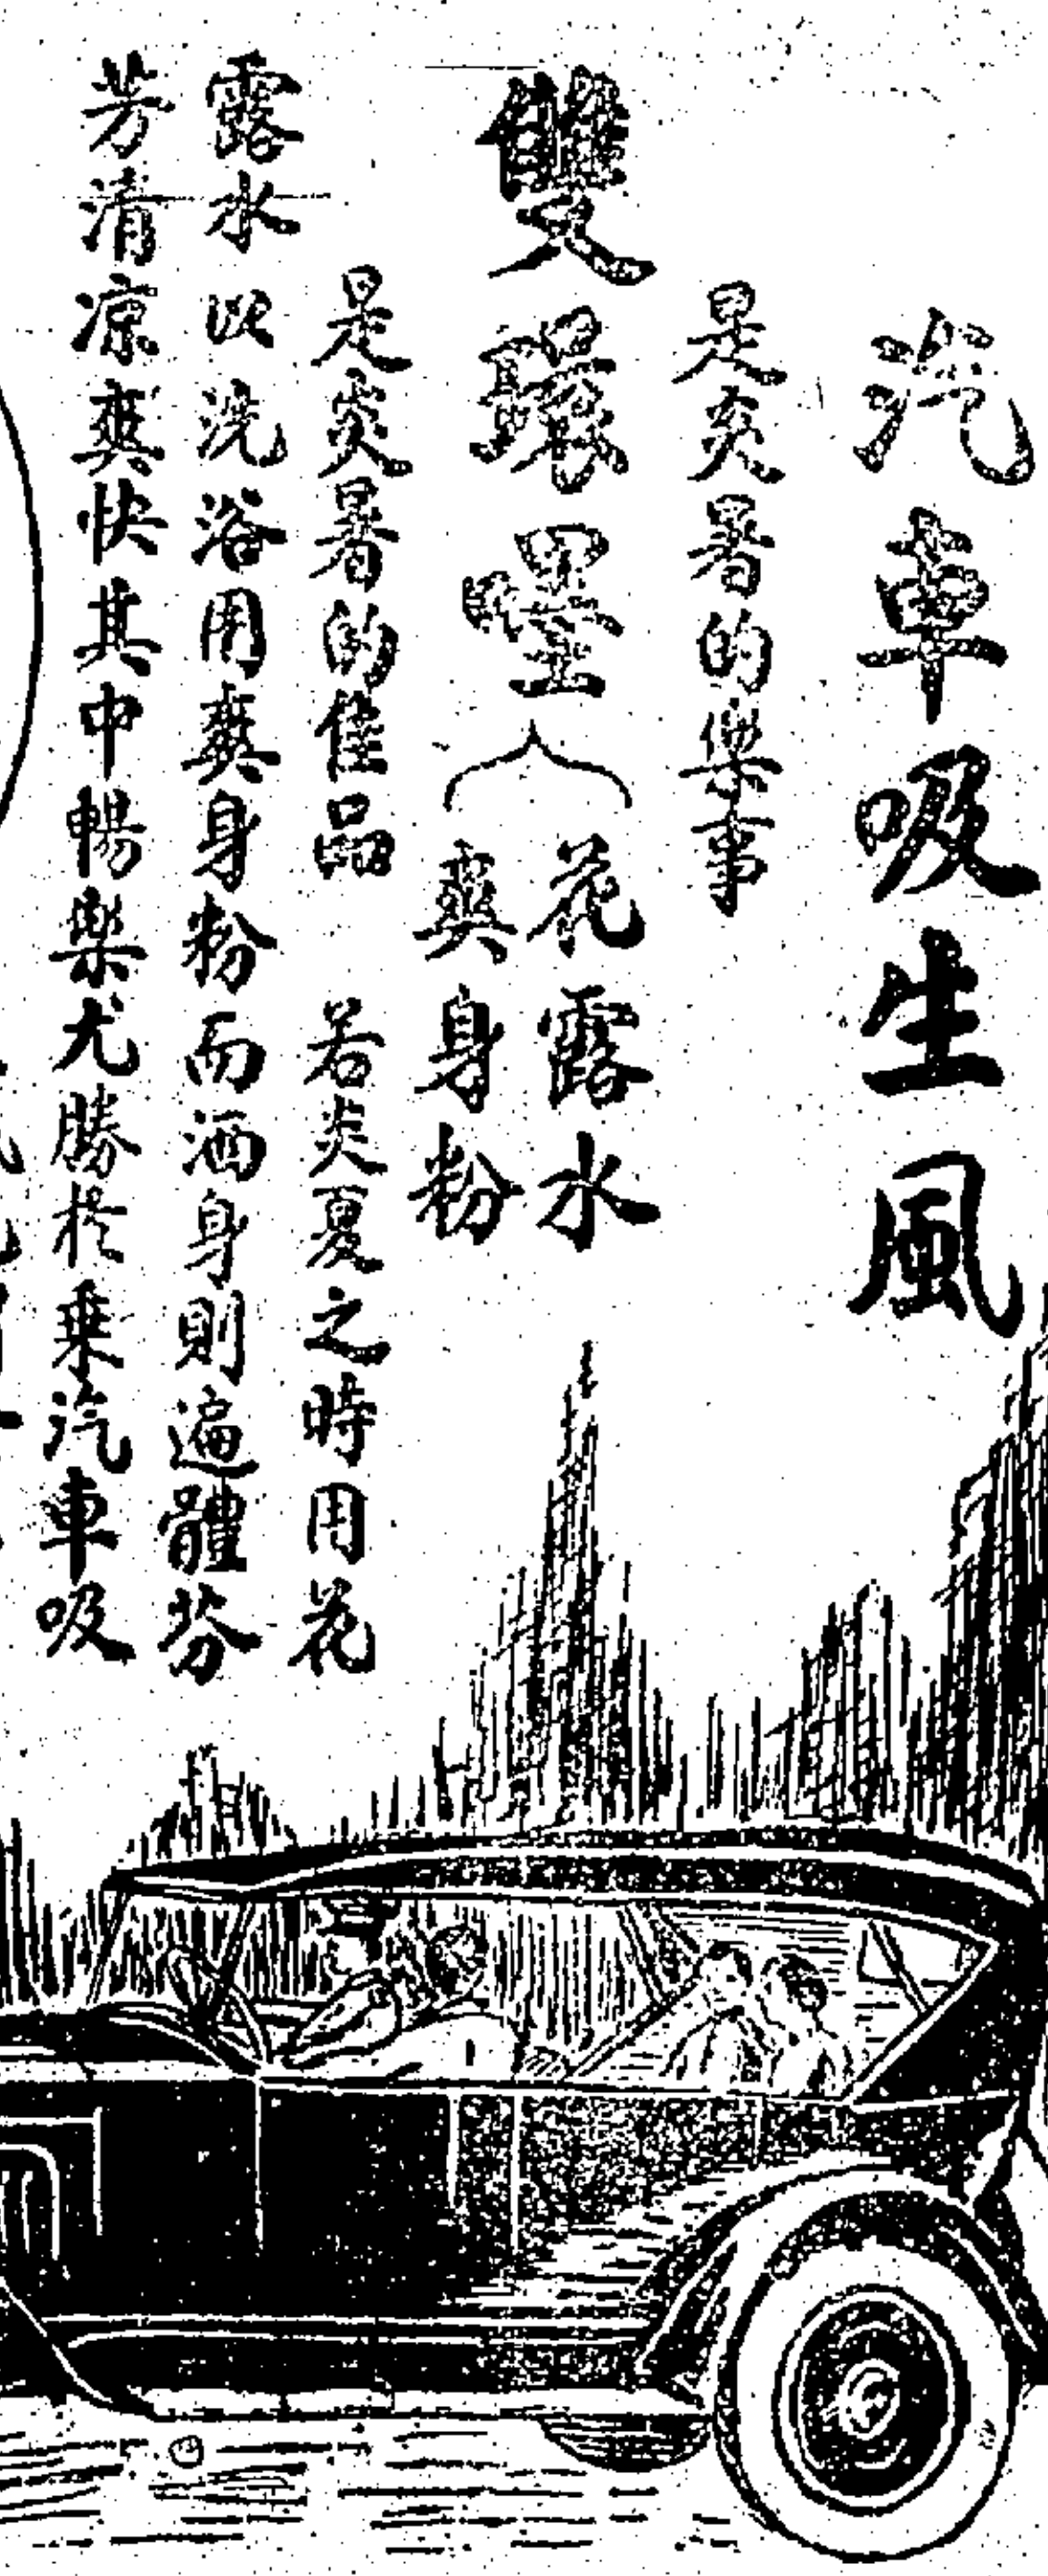 汽車吸生風
是炎暑的樂事
雙環嚜
花露水
爽身粉
是炎暑的佳品　若炎夏之時用花
露水以洗浴用爽身粉而洒身則遍體芬
芳清凉爽快其中暢樂尤勝於乘汽車吸